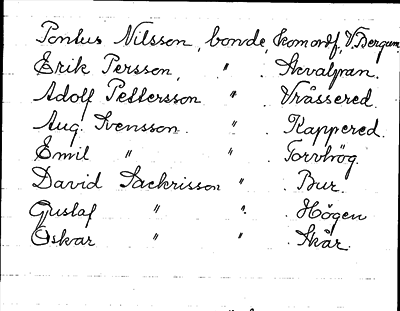 Pontus Nilsson, bonde Kom ordf, V. Bergum
Erik Persson, " Skvalpan.
Adolf Pettersson " Vråssered.
Aug. Svensson. " Kappered.
Emil " " Torvhög.
David Sackrisson " Bur.
Gustaf " " Högen
Oskar " " Skår.